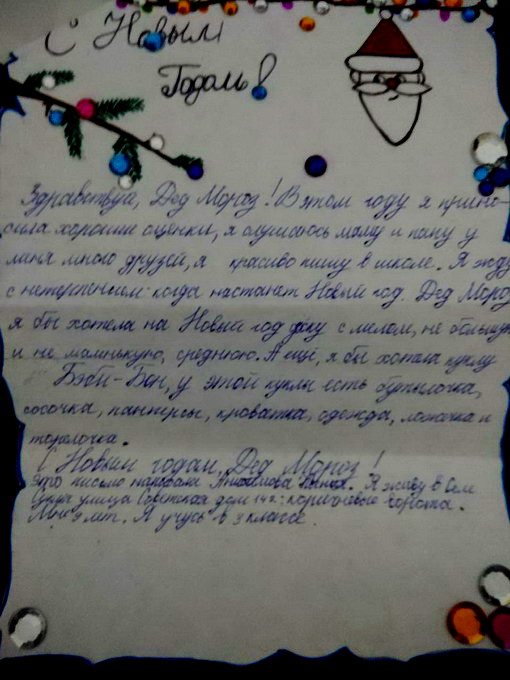 С Новым
Годом!
Здравствуй, Дед Мороз! В этом году я прино-
сила хорошие оценки, я слушаюсь маму и папу у
меня много друзей, я красиво пишу в школе. Я жду
с нетерпением когда настанет Новый год. Дед Мороз
я бы хотела на Новый год доску с мелом, не большую
и не маленькую, среднюю. А ещё, я бы хотела куклу
Бэби-Бон, у этой куклы есть бутылочка,
сосочка, памперсы, кроватка, одежда, ложечка и
торелочка.
С Новым годом, Дед Мороз!
это письмо написала Я живу в
улица Советская дом коричневые ворота.
Мне 9 лет. Я учусь в 3 классе.